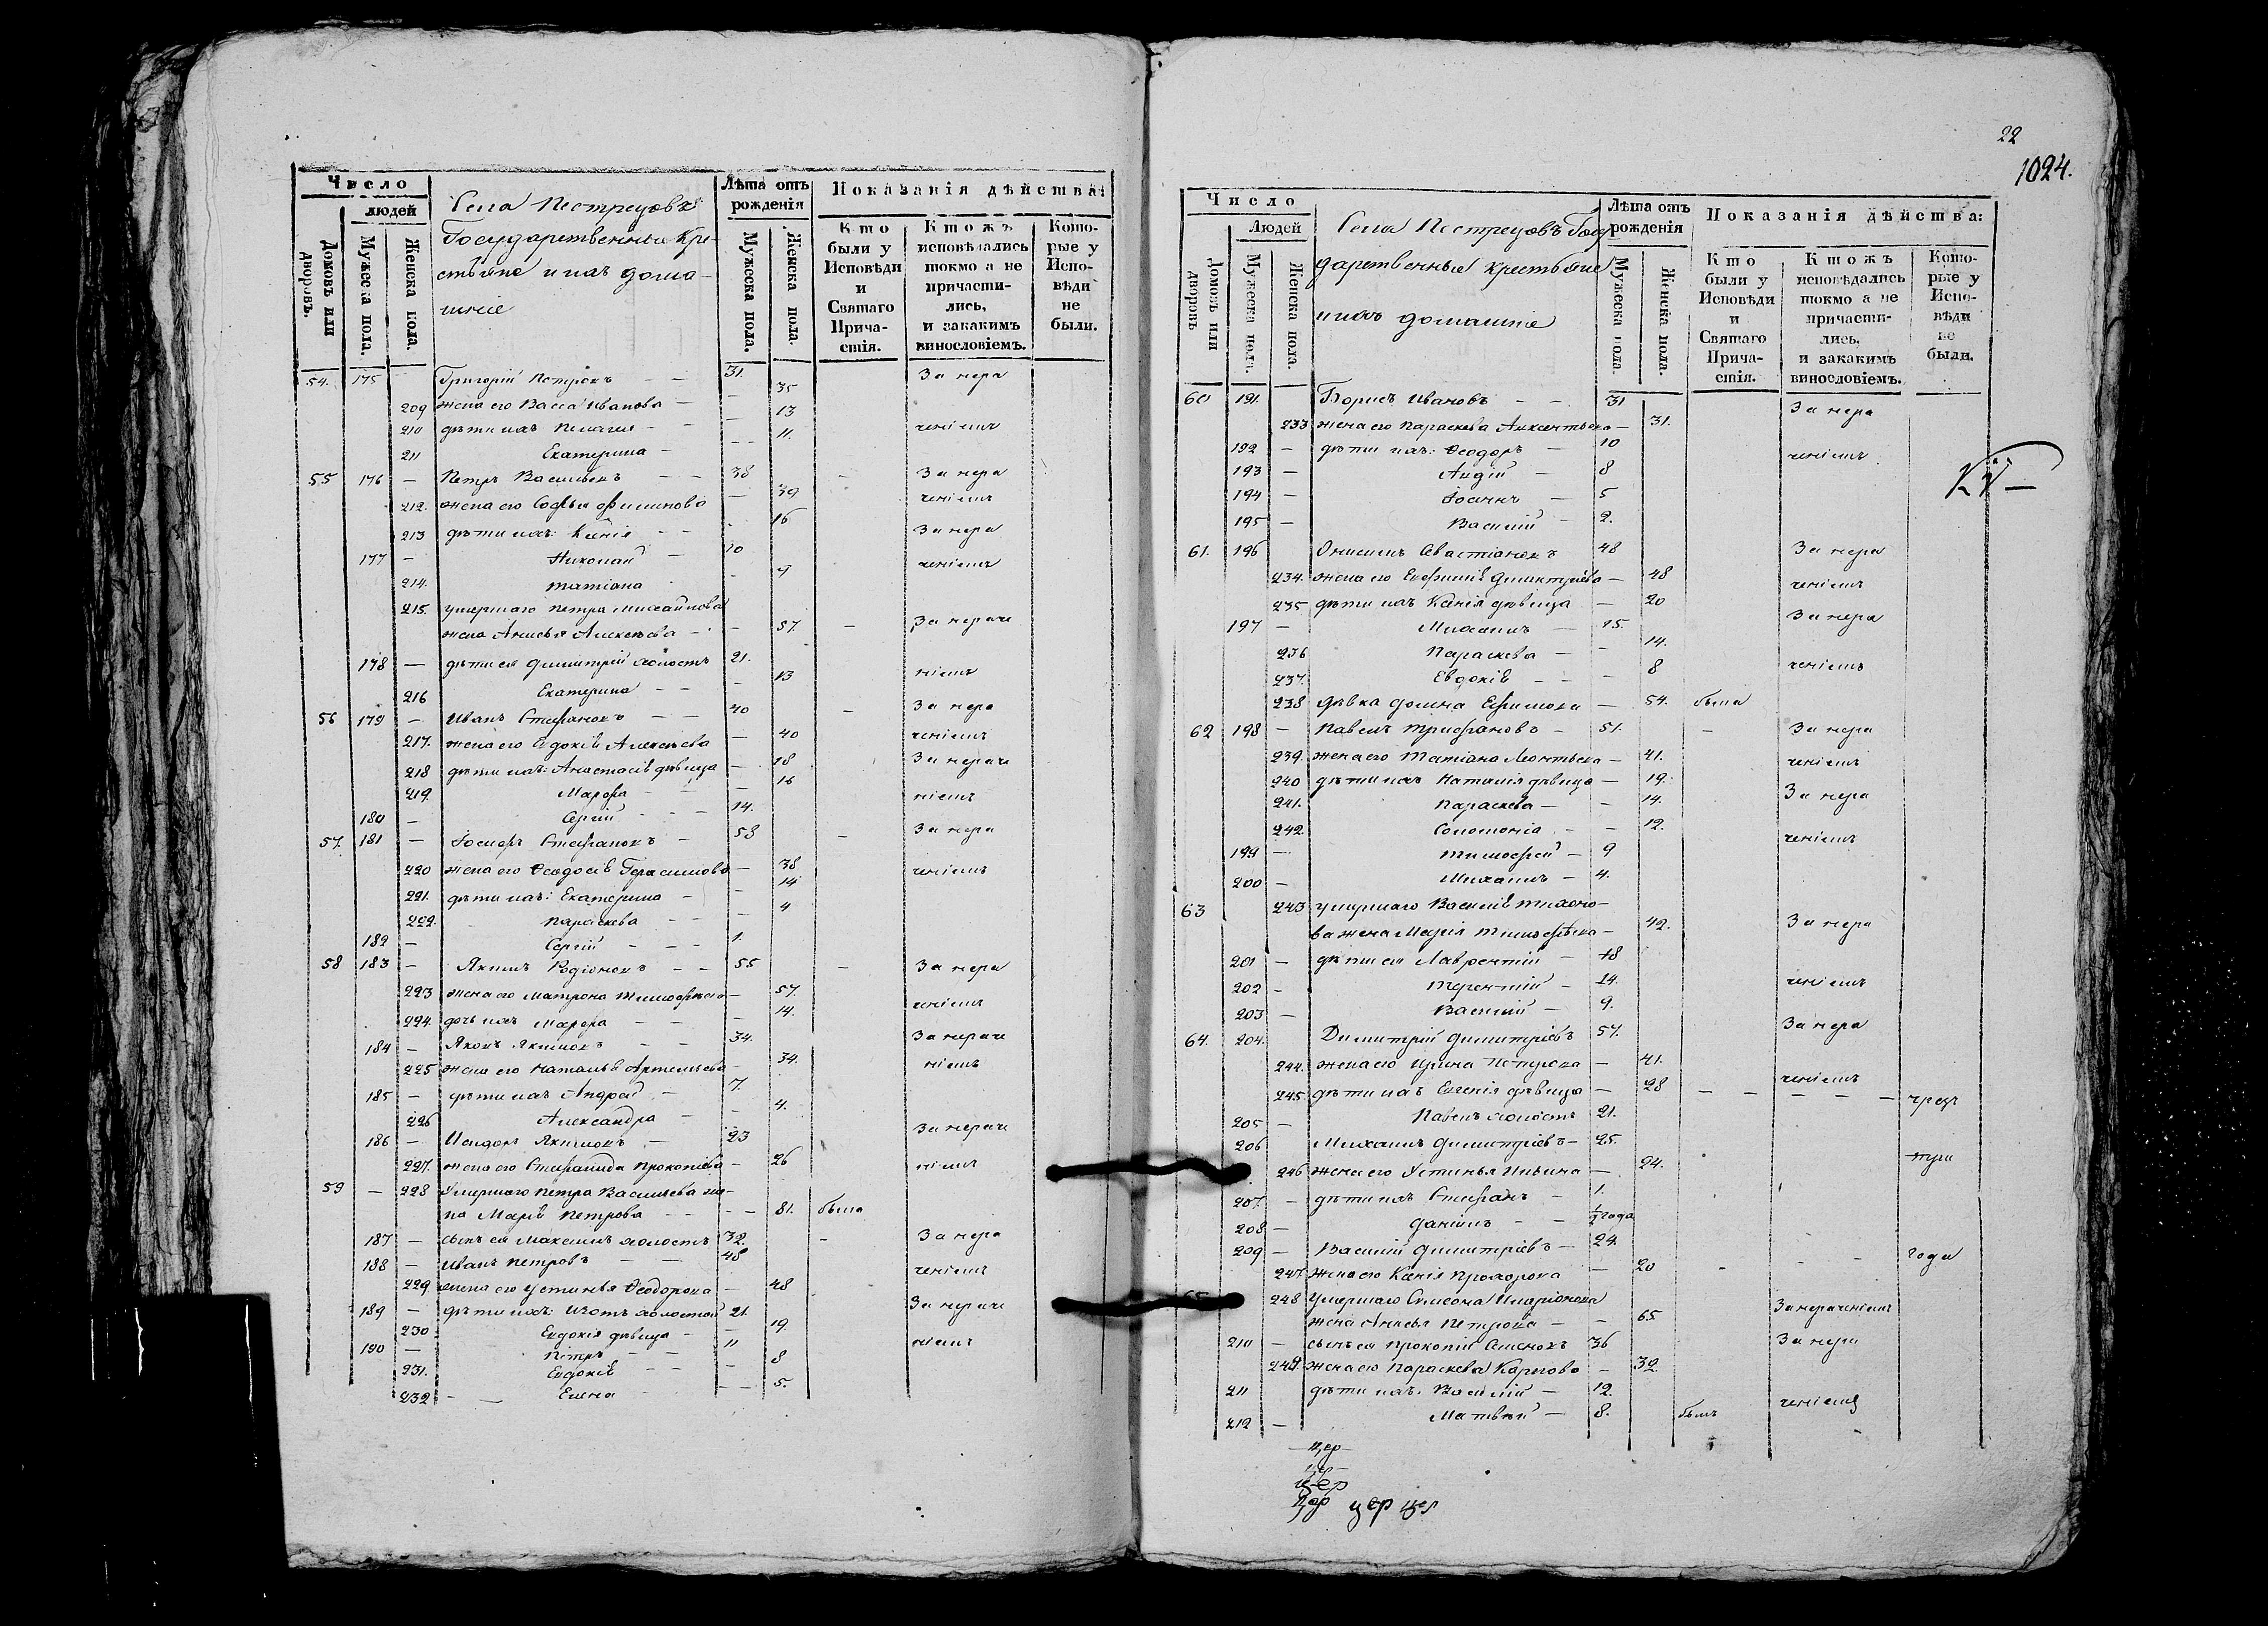 Число
людей
Домовъ или дворовъ.
Мужеска пола.
Женска пола.
Села Пестрецовъ
Государственныя Кре-
стьяне и ихъ дома-
шніе
Лѣта отъ рожденія
Мужеска пола.
Женска пола.
Показанія дѣйства:
Кто были у Исповѣди и Святаго Причастія.
Ктожъ исповѣдались токмо а не причастились, и закакимъ винословіемъ.
Которые у Исповѣди не были.
54. 175 Григорій Петровъ 31. За нера
209 жена его Васса Иванова 35
210 дѣти ихъ Пелагея 13 ченіемъ
211 Екатерина 11.
55 176 Петръ Васильевъ 38 За нера
212. жена его Софья Филипова 39 ченіемъ
213 дѣти ихъ: Ксенія 16 За нера
177 Николай 10 ченіемъ
214. Татіана 9
215. умершаго Петра Михайлова
жена Анисья Алексѣева 57. За нераче
178 дѣти ея Димитрій холостъ 21.
216 Екатерина 13 ніемъ
56 179 Иванъ Стефановъ 40 За нера
217. жена его Евдокія Алексѣева 40 ченіемъ
218 дѣти ихъ: Анастасія дѣвица 18 За нераче
219. Марфа 16 ніемъ
180 Сергій 14.
57. 181 Іосифъ Стефановъ 58 За нера
220 жена его Ѳеодосія Герасимова 38 ченіемъ
221. дѣти ихъ: Екатерина 14
222. Параскева 4
182 Сергій 1.
58 183 Якимъ Родіоновъ 55 За нера
223 жена его Матрона Тимоѳѣева 57. ченіемъ
224. дочь ихъ Марфа 14.
184 Яковъ Якимовъ 34. За нераче
225 жена его Наталья Артемьева 34. ніемъ
185 дѣти ихъ Андрей 7.
226 Александра 4.
186 Исидоръ Якимовъ 23 За нераче
227. жена его Стефанида Прокопіева 26 ніемъ
59 228 Умершаго Петра Васильева же-
на Марія Петрова 81. была
187 сынъ ея Максимъ холостъ 32. За нера
188 Иванъ Петровъ 48
229. жена его Устинья Ѳеодорова 48 ченіемъ
189 дѣти ихъ: Изотъ холостой 21. За нераче
230 Евдокія дѣвица 19.
190 Петръ 11 ніемъ
231. Евдокія 8
232 Елена 5.
22
1024.
Число
Людей
Домовъ или дворовъ
Мужеска пола.
Женска пола.
Села Пестрецовъ Госу
дарственные крестьяне
и ихъ домашніе
Лѣта отъ рожденія
Мужеска пола.
Женска пола.
Показанія дѣйства:
Кто были у Исповѣди и Святаго Причастія.
Ктожъ исповѣдались токмо а не причастились, и закакимъ винословіемъ.
Которые у Исповѣди не были.
60 191. Борисъ Ивановъ 31 За нера
233 жена его Параскева Авксентьева 31.
192 дѣти ихъ: Ѳеодоръ 10 ченіемъ
193 Авдій 8
194 5
195 Василій 2.
61. 196 Онисимъ Севастіановъ 48 За нера
234. жена его Евфимія Димитріева 48 ченіемъ
235 дѣти ихъ Ксенія дѣвица 20
197 Михаилъ 15. За нера
236 Параскева 14.
237. Евдокія 8 ченіемъ
238 дѣвка Домна Ефимова 54. была
62 198 Павелъ Трифановъ 51. За нера
239. жена его Татіана Леонтьева 41. ченіемъ
240 дѣти ихъ Наталія дѣвица 19.
241. Параскева 14. За нера
242. Соломонія 12.
199 Тимоѳей 9 ченіемъ
200 Михаилъ 4.
63 243 умершаго Василія Тихоно-
ва жена Марія Тимоѳѣева 42. За нера
201 дѣти ея Лаврентій 18
202 Терентій 14. ченіемъ
203 Василій 9.
64. 204. Димитрій Димитріевъ 57. За нера
244. жена его Ирина Петрова 41.
245 дѣти ихъ Евгенія дѣвица 28 ченіемъ
205 Павелъ холостъ 21.
206 Михаилъ Димитріевъ 25.
246 жена его Устинья Ильина 24.
207. дѣти ихъ Стефанъ 1.
208 Даніилъ ½ года
209 Василій Димитріевъ 24
247. жена его Ксенія Прохорова 20 года
65 248 Умершаго Симеона Иларіонова
жена Анисья Петрова 65 За нераченіемъ
210 сынъ ея Прокопій Семеновъ 36 За нера
249. жена его Параскева Карпова 32.
211 дѣти ихъ. Василій 12. ченіемъ
212 Матвѣй 8. былъ
цер
цер
цер
цер цер цер